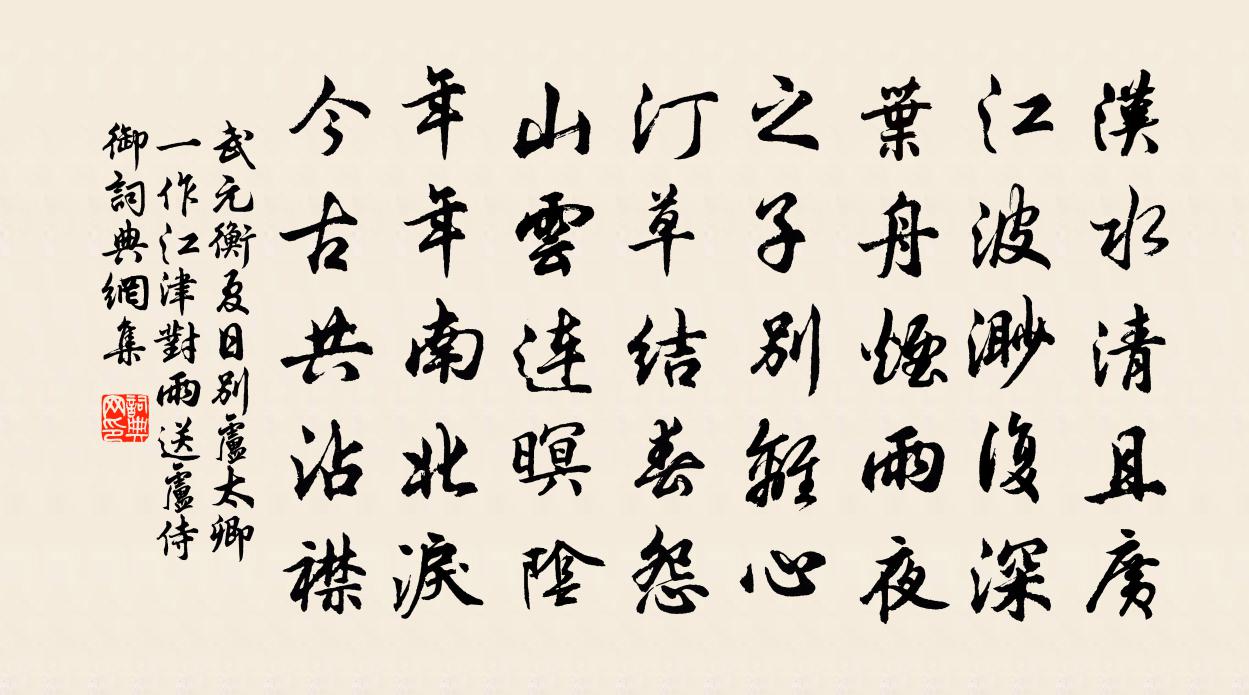 漢水清且廣
江波渺復深
葉舟煙雨夜
之子別離心
汀草結春怨
山雲連暝陰
年年南北淚
今古共沾襟
武元衡夏日別盧太卿
一作江津對雨送盧侍
御詞典網集
詞典
网印